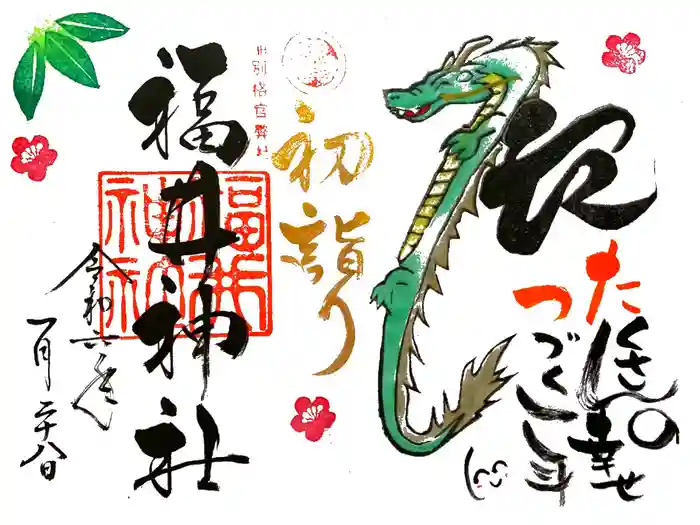 たくさんの幸せ
つづく一年
初詣り
別格官幣社
福井神社
福井
神社
令和六年
一月二十八日